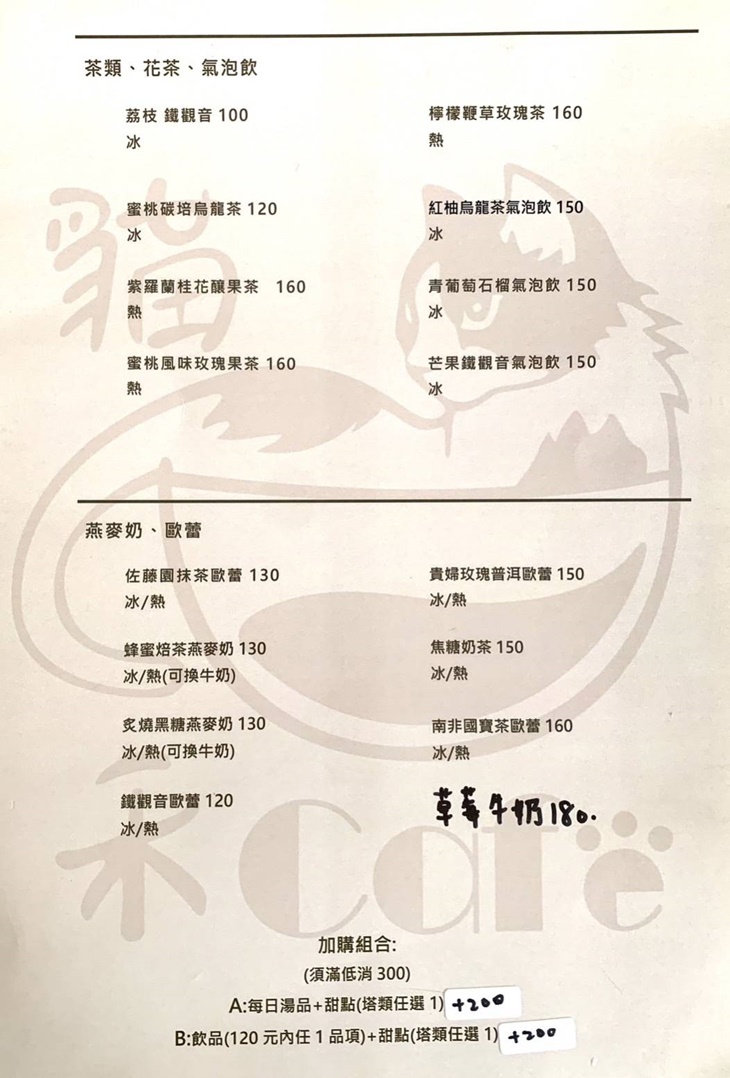 茶類、花茶、氣泡飲
荔枝 鐵觀音 100
冰
蜜桃碳培烏龍茶 120
冰
紫羅蘭桂花釀果茶 160
熱
蜜桃風味玫瑰果茶 160
熱
檸檬鞭草玫瑰茶 160
熱
紅柚烏龍茶氣泡飲 150
冰
青葡萄石榴氣泡飲 150
冰
芒果鐵觀音氣泡飲 150
冰
燕麥奶、歐蕾
佐藤園抹茶歐蕾 130
冰/熱
蜂蜜焙茶燕麥奶 130
冰/熱(可換牛奶)
炙燒黑糖燕麥奶 130
冰/熱(可換牛奶)
鐵觀音歐蕾 120
冰/熱
貴婦玫瑰普洱歐蕾 150
冰/熱
焦糖奶茶 150
冰/熱
南非國寶茶歐蕾 160
冰/熱
草莓牛奶180.
加購組合:
(須滿低消 300)
A:每日湯品+甜點(塔類任選 1) +200
B:飲品(120 元內任 1 品項)+甜點(塔類任選 1) +200
貓
禾Café